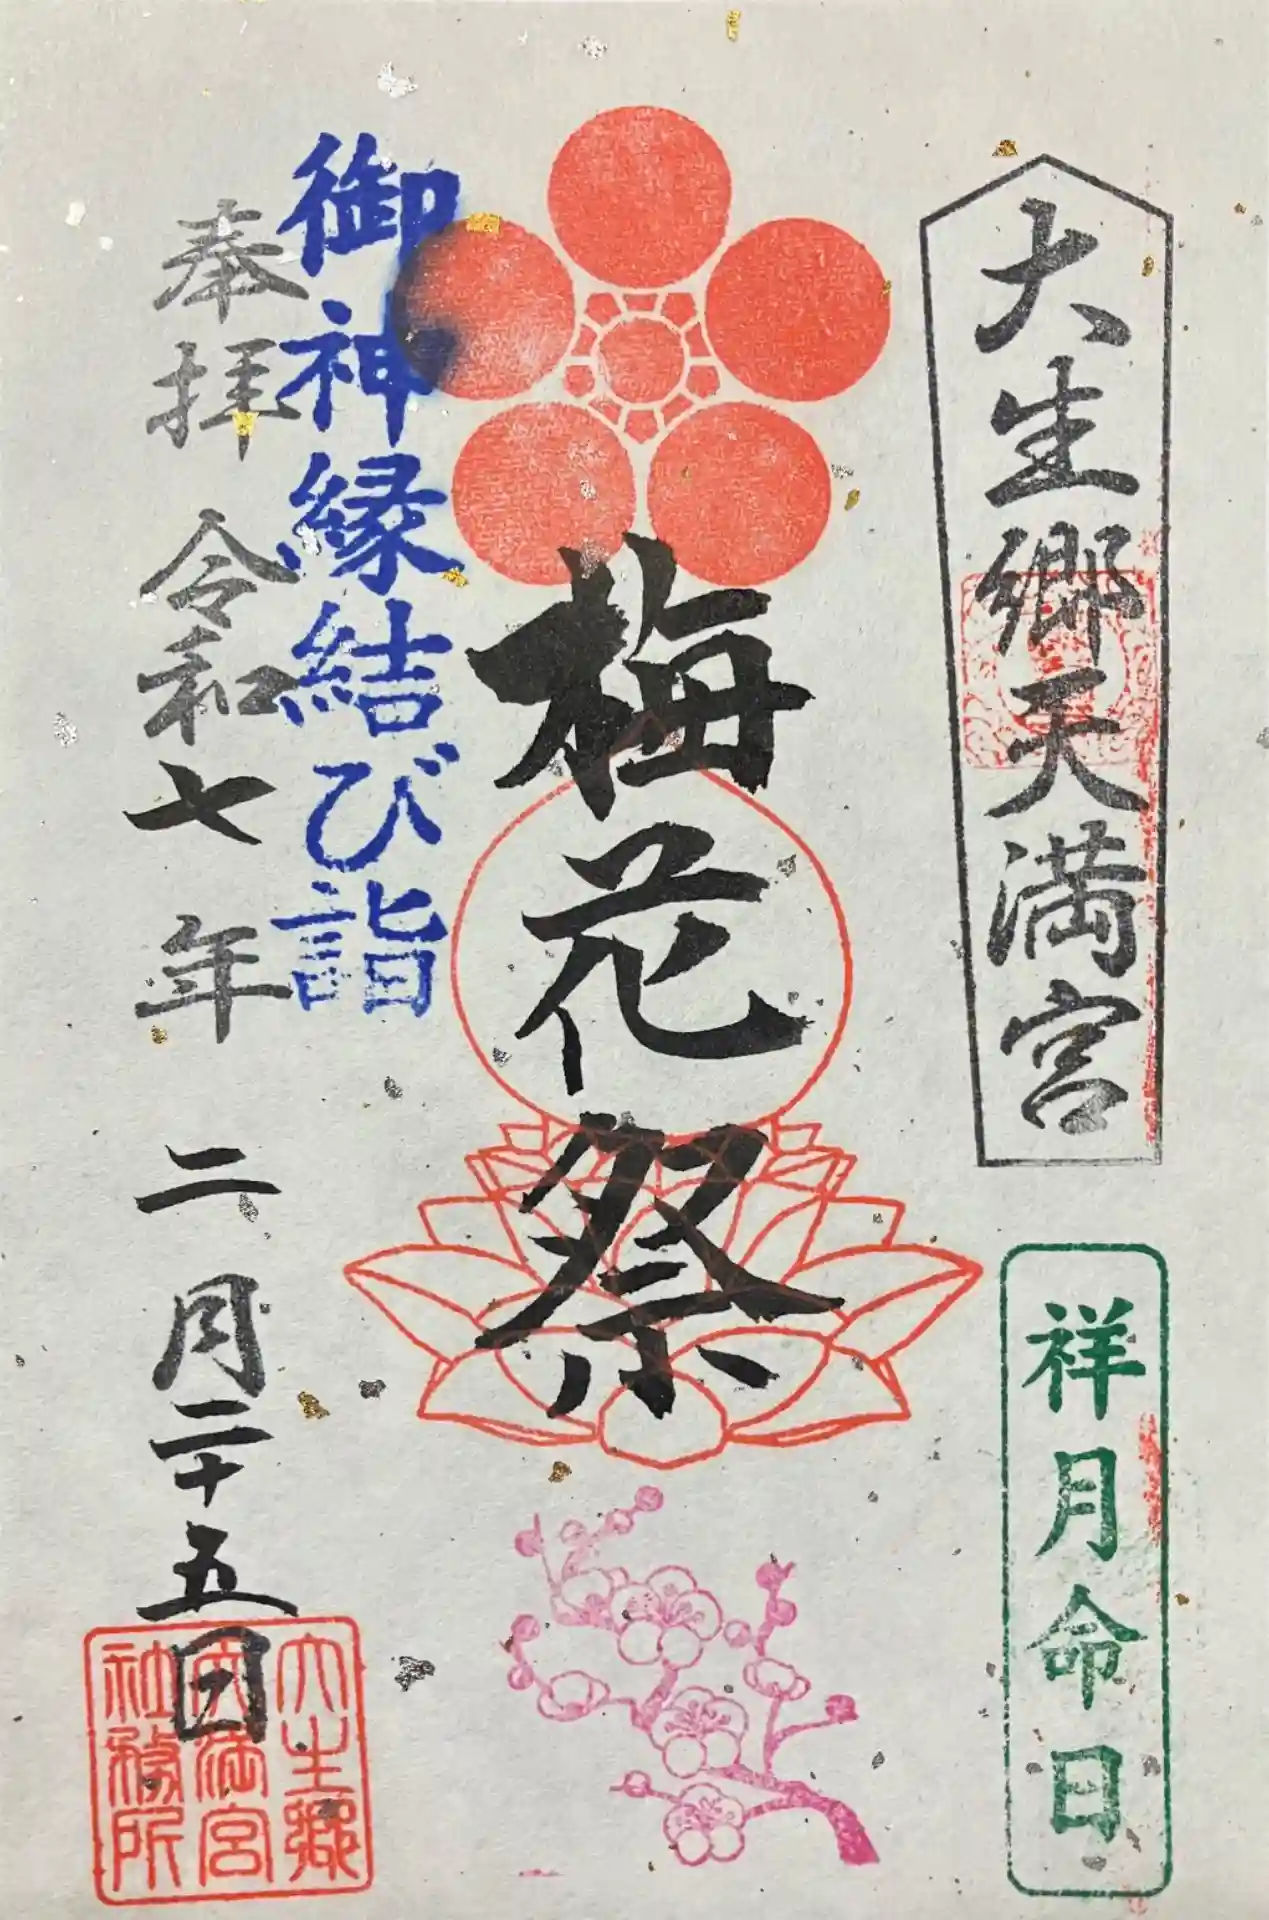 大生郷天満宮
祥月命日
梅花祭
御神縁結び詣
奉拝 令和七年 二月二十五日
大生郷
天満宮
社務所